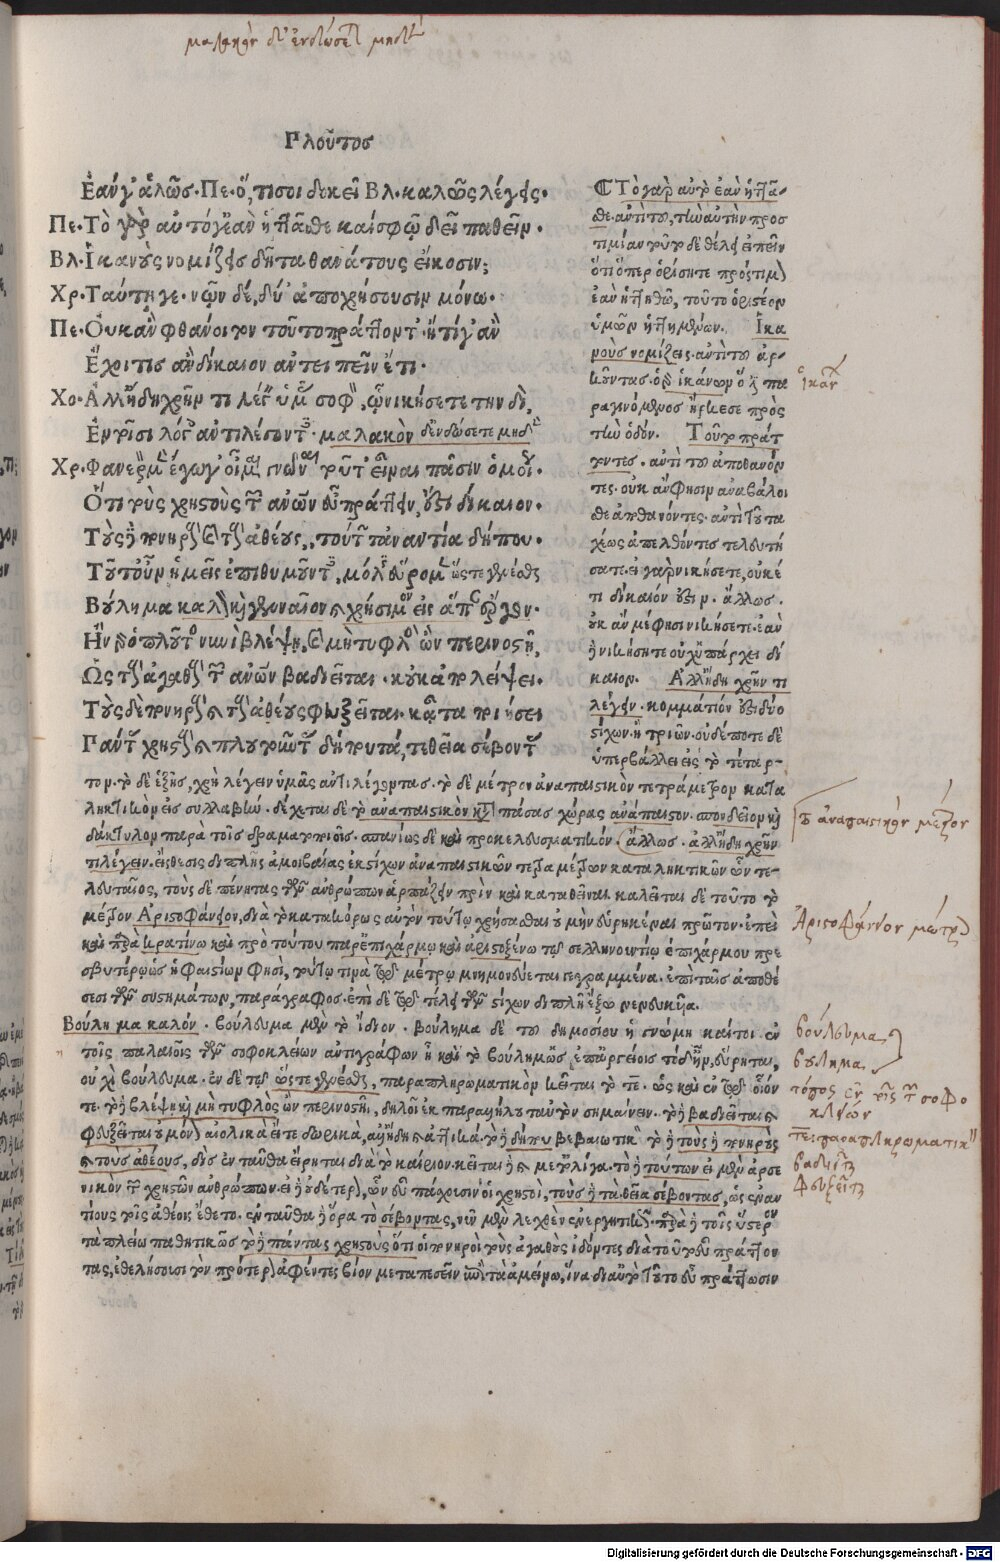 μαλακὸν δ' ἐνδώσετε μηδὲν
Πλοῦτος
Ἐὰν γ' ἁλῶς. Πε. ὅ, τι σοι δοκεῖ Βλ. καλῶς λέγεις.
Πε. Τὸ γὰρ αὐτό γ' ἐὰν ἡττᾶσθε καὶ σφῶ δεῖ παθεῖν.
Βλ. Ἱκανοὺς νομίζεις δῆτα θανάτους εἴκοσιν;
Χρ. Ταύτῃ γε. νῶν δέ, δύ' ἀποχρήσουσιν μόνω.
Πε. Οὐκ ἂν φθάνοιτον τοῦτο πράττοντ'. ἢ τί γ' ἂν
Ἔχοι τις ἂν δίκαιον ἀντειπεῖν ἔτι.
Χο. Ἀλλ' ἤδη χρῆν τι λέγειν ὑμᾶς σοφὸν, ᾧ νικήσετε τηνδὶ,
Ἐν τοῖσι λόγοις ἀντιλέγοντες. μαλακὸν δ' ἐνδώσετε μηδὲν
Χρ. Φανερὸν μὲν ἔγωγ' οἶμαι γνῶναι τοῦτ' εἶναι πᾶσιν ὁμοίως.
Ὅτι τοὺς χρηστοὺς τῶν ἀνθρώπων εὖ πράττειν, ἐστὶ δίκαιον.
Τοὺς δὲ πονηροὺς καὶ τοὺς ἀθέους, τούτων τἀναντία δήπου.
Τοῦτ' οὖν ἡμεῖς ἐπιθυμοῦντες, μόλις εὕρομεν ὥστε γενέσθαι
Βούλημα καλὸν καὶ γενναῖον καὶ χρήσιμον εἰς ἅπαν ἔργον.
Ἢν γὰρ ὁ πλοῦτος νυνὶ βλέψῃ, καὶ μὴ τυφλὸς ὢν περινοστῇ,
Ὡς τοὺς ἀγαθοὺς τῶν ἀνθρώπων βαδιεῖται. κοὐκ ἀπολείψει.
Τοὺς δὲ πονηροὺς καὶ τοὺς ἀθέους φευξεῖται. κᾆτα ποιήσει
Πάντας χρηστοὺς καὶ πλουτοῦντας δήπου τά, τε θεῖα σέβοντας
Τὸ γὰρ αὐτὸ ἐὰν ἡττᾶ-
σθε. ἀντὶ τοῦ, τὴν αὐτὴν προς
τιμίαν τοῦτο δὲ θέλει εἰπεῖν
ὅτι ὅπερ ὁρίσητε πρόστιμον
ἐὰν ἡττηθῶ, τοῦτο ὁριστέον
ὑμῶν ἡττημένων. Ἱκα
νοὺς νομίζεις. ἀντὶ τοῦ ἀρ-
κοῦντας.
ραγινόμενος ἤρκεσε πρὸς
τὴν ὁδόν. Τοῦτο πράτ
τοντες. ἀντὶ τοῦ ἀποθανόν
τες. οὐκ ἂν φθήσιν ἀναβάλοι
σθε ἀποθανόντες. ἀντὶ τοῦ τα
χέως ἀπελθόντες τελευτή
σατε. εἰ γὰρ νικήσετε, οὐκέ
τι δίκαιόν ἐστιν. ἄλλως.
ἐὰν
ἡ νικήσητε οὐχ ὑπάρχει δί
καιον. Ἀλλ' ἤδη χρῆν τι
λέγειν. κομμάτιόν ἐστι δύο
στίχων ἢ τριῶν. οὐδέποτε δὲ
ὑπερβάλλει εἰς τὸ τέταρ-
τον. τὸ δὲ ἑξῆς, χρὴ λέγειν ὑμᾶς ἀντιλέγοντας. τὸ δὲ μέτρον ἀναπαιστικὸν τετράμετρον κατα
ληκτικὸν εἰς συλλαβήν. δέχεται δὲ τὸ ἀναπαιστικὸν κατὰ πάσας χώρας ἀνάπαιστον. σπονδεῖον καὶ
δάκτυλον παρὰ τοῖς δραματοποιοῖς. σπανίως δὲ καὶ προκελευσματικόν. ἄλλως. ἀλλ' ἤδη χρῆν
τι λέγειν. εἴσθεσις διπλῆς ἀμοιβαίας ἐκ στίχων ἀναπαιστικῶν τετραμέτρων καταληκτικῶν ὧν τε-
λευταῖος, τοὺς δὲ πένητας τῶν ἀνθρώπων ἁρπάζειν πρὶν καὶ καταθεῖναι. καλεῖται δὲ τοῦτο τὸ
μέτρον Ἀριστοφάνειον, διὰ τὸ κατακόρως αὐτὸν τούτῳ χρήσασθαι οὐ μὴν εὑρηκέναι πρῶτον. ἐπεὶ
καὶ παρὰ κρατίνω καὶ πρὸ τούτου παρ' ἐπιχάρμῳ καὶ ἀριστοξένω τῷ σελλινουντίῳ ἐπιχάρμου πρε
σβυτέρῳ ὡς ἡφαιστίων φησὶ, τούτῳ τινὰ τῷ μέτρῳ μνημονεύεται γεγραμμένα. ἐπὶ ταῖς ἀποθέ
σεσι τῶν συστημάτων, παράγραφος. ἐπὶ δὲ τῷ τέλει τῶν στίχων διπλῆ ἔξω νενευκυῖα.
Βούλημα καλόν. βούλευμα μὲν τὸ ἴδιον. βούλημα δὲ τοῦ δημοσίου ἡ γνώμη καίτοι ἐν
τοῖς παλαιοῖς τῶν σοφοκλείων ἀντιγράφων
οὐχὶ βούλευμα. ἐν δὲ τῷ ὥστε γενέσθαι, παραπληρωματικὸν κεῖται τὸ τε. ὡς καὶ ἐν τῷ οἷόν
τε. τὸ δὲ βλέψῃ καὶ μὴ τυφλὸς ὢν περινοστῇ, δηλοῖ ἐκ παραλλήλου ταὐτὸν σημαίνειν. τὸ δὲ βαδιεῖται καὶ
φευξεῖται οὐ μόνον αἰολικὰ εἴτε δωρικὰ, ἀλλ' ἤδη καὶ ἀττικά. τὸ δὲ δήπου βεβαιωτικὸν τὸ δὲ τοὺς δὲ πονηροὺς
καὶ τοὺς ἀθέους, δὶς ἐνταῦθα εἴρηται διὰ τὸ καίριον.
νικὸν τῶν χρηστῶν ἀνθρώπων.
τίους τοῖς ἀθέοις ἔθετο. ἐνταῦθα δὲ ὅρα τὸ σέβοντας, νῦν μὲν λεχθὲν ἐνεργητικῶς.
τὰ πλείω παθητικῶς τὸ δὲ πάντας χρηστοὺς ὅτι οἱ πονηροὶ τοὺς ἀγαθοὺς ἰδόντες διὰ τοῦτο εὖ πράττον
τας, ἐθελήσουσι τὸν πρότερον ἀφέντες βίον μεταπεσεῖν ἐπὶ τὰ ἀμείνω, ἵνα διὰ τοῦτο εὖ πράττωσιν
ἱκανοὶ
τὸ ἀναπαιστικὸν μέτρον
Ἀριστοφάνειον μέτρον
βούλευμα
βούλημα
τόπος ἐν τοῖς τῶν σοφο
κλείων
τε παραπληρωματικὸν
βαδιεῖται
φευξεῖται
Digitalisierung gefördert durch die Deutsche Forschungsgemeinschaft - DFG